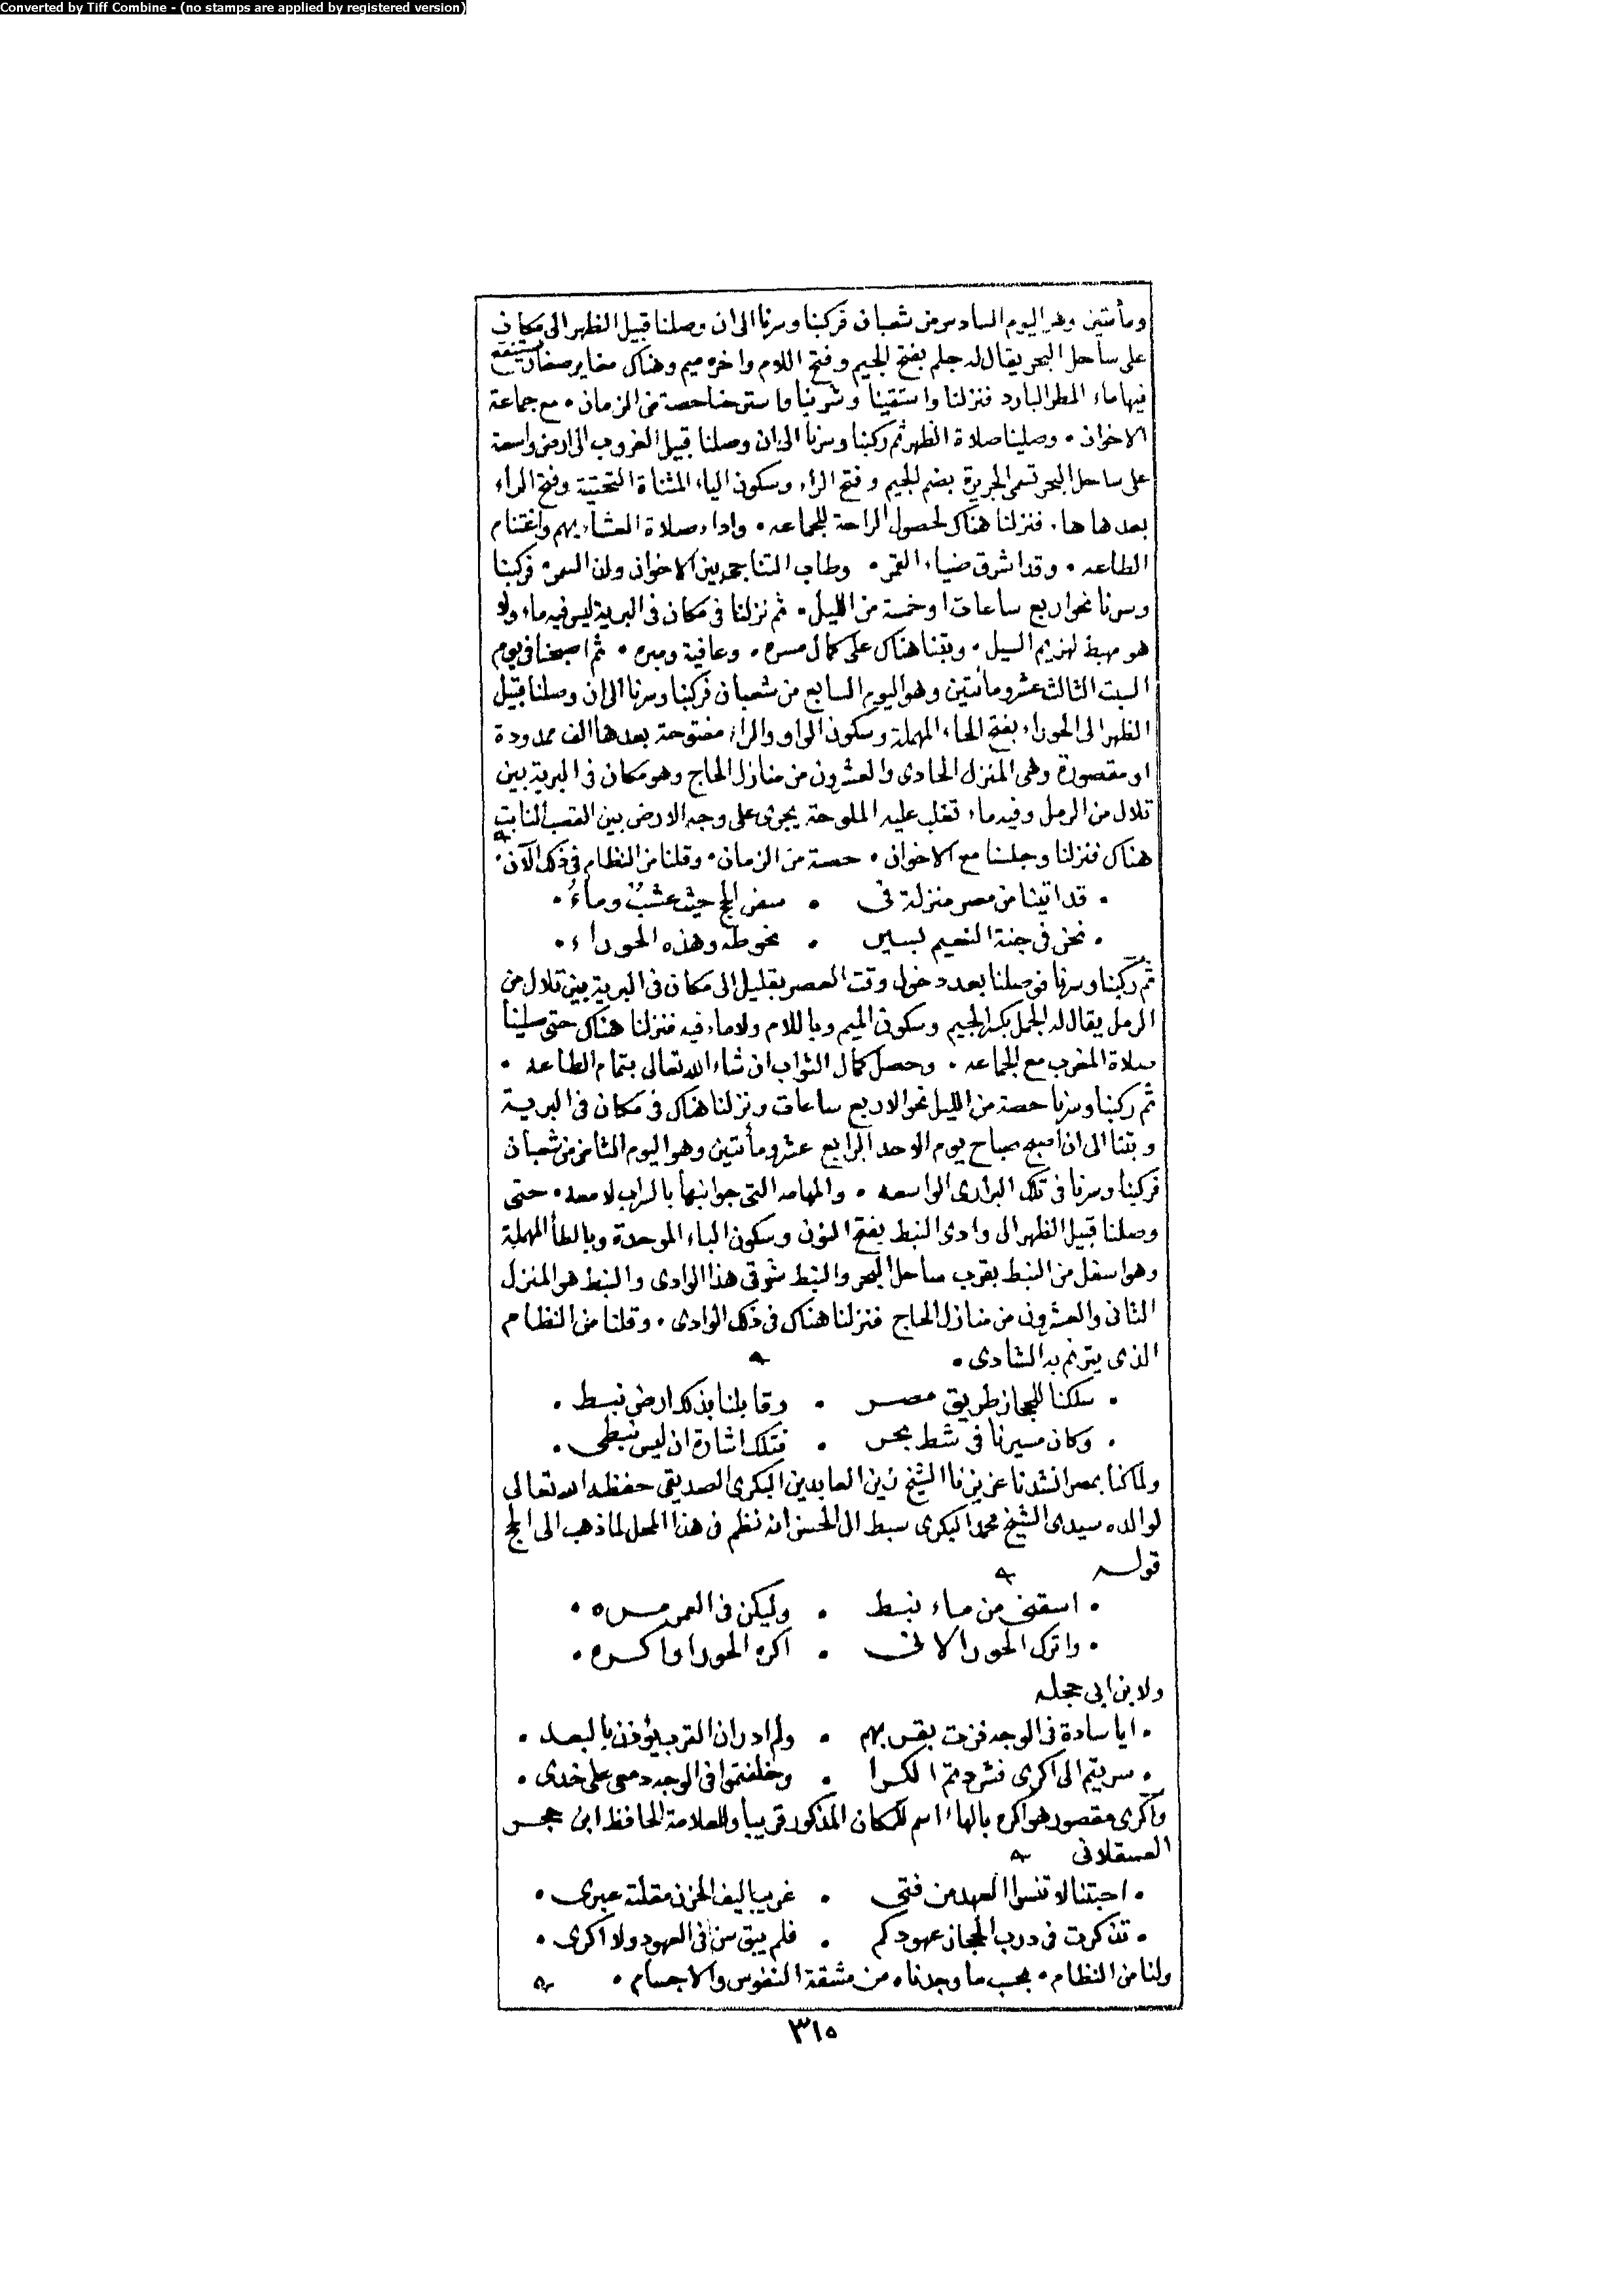 Converted by Tiff Combine - (no stamps are applied by registered version)
ومأتين وهو اليوم السادس من شعبان فركبنا وسرنا الى ان وصلنا قبيل الظهر الى مكان
على ساحل البحر يقال له جلم بفتح الجيم وفتح اللام واخره ميم وهناك مغاير صغار يستنقع
فيها ماء المطر البارد فنزلنا واستقينا وشربنا واسترحنا حصة من الزمان ٠ مع جماعة
الاخوان ٠ وصلينا صلاة الظهر ثم ركبنا وسرنا الى ان وصلنا قبيل الغروب الى ارض واسعة
على ساحل البحر تسمى الجريرة بضم الجيم وفتح الراء وسكون الياء المثناة التحتية وفتح الراء
بعدها هاء فنزلنا هناك لحصول الراحة للجماعه ٠ واداء صلاة العشاء بهم واغتنام
الطاعه ٠ وقد اشرق ضياء القمر ٠ وطاب التناجى بين الاخوان ولذ السمر ٠ فركبنا
وسرنا نحو اربع ساعات او خمسة من الليل ٠ ثم نزلنا في مكان في البرية ليس فيه ماء ولا
هو مهبط لهزيم السيل ٠ وبتنا هناك على كمال مسره ٠ وعافية ومبره ٠ ثم اصبحنا في يوم
السبت الثالث عشر ومأتين وهو اليوم السابع من شعبان فركبنا وسرنا الى ان وصلنا قبيل
الظهر الى الحوراء بفتح الحاء المهملة وسكون الواو والراء مفتوحة بعدها الف ممدودة
او مقصورة وهي المنزل الحادى والعشرون من منازل الحاج وهو مكان في البرية بين
تلال من الرمل وفيه ماء تغلب عليه الملوحة يجرى على وجه الارض بين القصب النابت
هناك فنزلنا وجلسنا مع الاخوان ٠ حصة من الزمان ٠ وقلنا من النظام في ذلك الآن ٠
٠ قد اتينا من مصر منزلة في ٠ سفر الحج حيث عشبٌ وماءُ ٠
٠ نحن في جنة النعيم بسير ٠ نحو طه وهذه الحوراء ٠
ثم ركبنا وسرنا فوصلنا بعد دخول وقت العصر بقليل الى مكان في البرية بين تلال من
الرمل يقال له الجمل بكسر الجيم وسكون الميم وباللام ولا ماء فيه فنزلنا هناك حتى صلينا
صلاة المغرب مع الجماعه ٠ وحصل كمال الثواب ان شاء الله تعالى بتمام الطاعه ٠
ثم ركبنا وسرنا حصة من الليل نحو الاربع ساعات ونزلنا هناك في مكان في البرية
وبتنا الى ان اصبح صباح يوم الاحد الرابع عشر ومأتين وهو اليوم الثامن من شعبان
فركبنا وسرنا في تلك البرارى الواسعه ٠ والمهامه التي جوانبها بالسراب لامعه ٠ حتى
وصلنا قبيل الظهر الى وادى النبط بفتح النون وسكون الباء الموحدة وبالطأ المهملة
وهو اسفل من النبط بقرب ساحل البحر والنبط شرقى هذا الوادى والنبط هو المنزل
الثاني والعشرون من منازل الحاج فنزلنا هناك في ذلك الوادى ٠ وقلنا من النظام
الذى يترنم به الشادى ٠
٠ سلكنا للحجاز طريق مصر ٠ وقابلنا بذلك ارض نبط ٠
٠ وكان مسيرنا في شط بحر ٠ فتلك اشارة ان ليس نبطى ٠
ولما كنا بمصر انشدنا عزيزنا الشيخ زين العابدين البكرى الصديقى حفظه الله تعالى
لوالده سيدى الشيخ محمد البكرى سبط ال الحسن انه نظم في هذا المحل لما ذهب الى الحج
قوله
٠ اسقنى من ماء نبط ٠ وليكن في العمر مره ٠
٠ واترك الحورا لانى ٠ اكره الحورا واكره ٠
ولابن ابى حجله
٠ ايا سادة في الوجه فزت بقربهم ٠ ولم ادر ان القرب يؤذن بالبعد ٠
٠ سريتم الى اكرى فشردتم الكرا ٠ وخلفتموا في الوجه دمعى على خدى ٠
واكرى مقصور هو اكره بالهاء اسم للمكان المذكور قريبا وللعلامة الحافظ ابن حجر
العسقلانى
٠ احبتنا لا تنسوا العهد من فتى ٠ غريب اليف الحزن مقلته عبرى ٠
٠ تذكرت في درب الحجاز عهودكم ٠ فلم يبق سن في العهود ولا اكرى ٠
ولنا من النظام ٠ بحسب ما وجدناه من مشقة النفوس والاجسام ٠
٣١٥